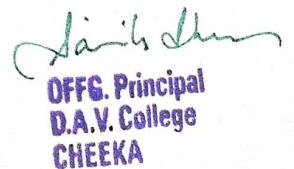 OFFG. Principal
D.A.V. College
CHEEKA